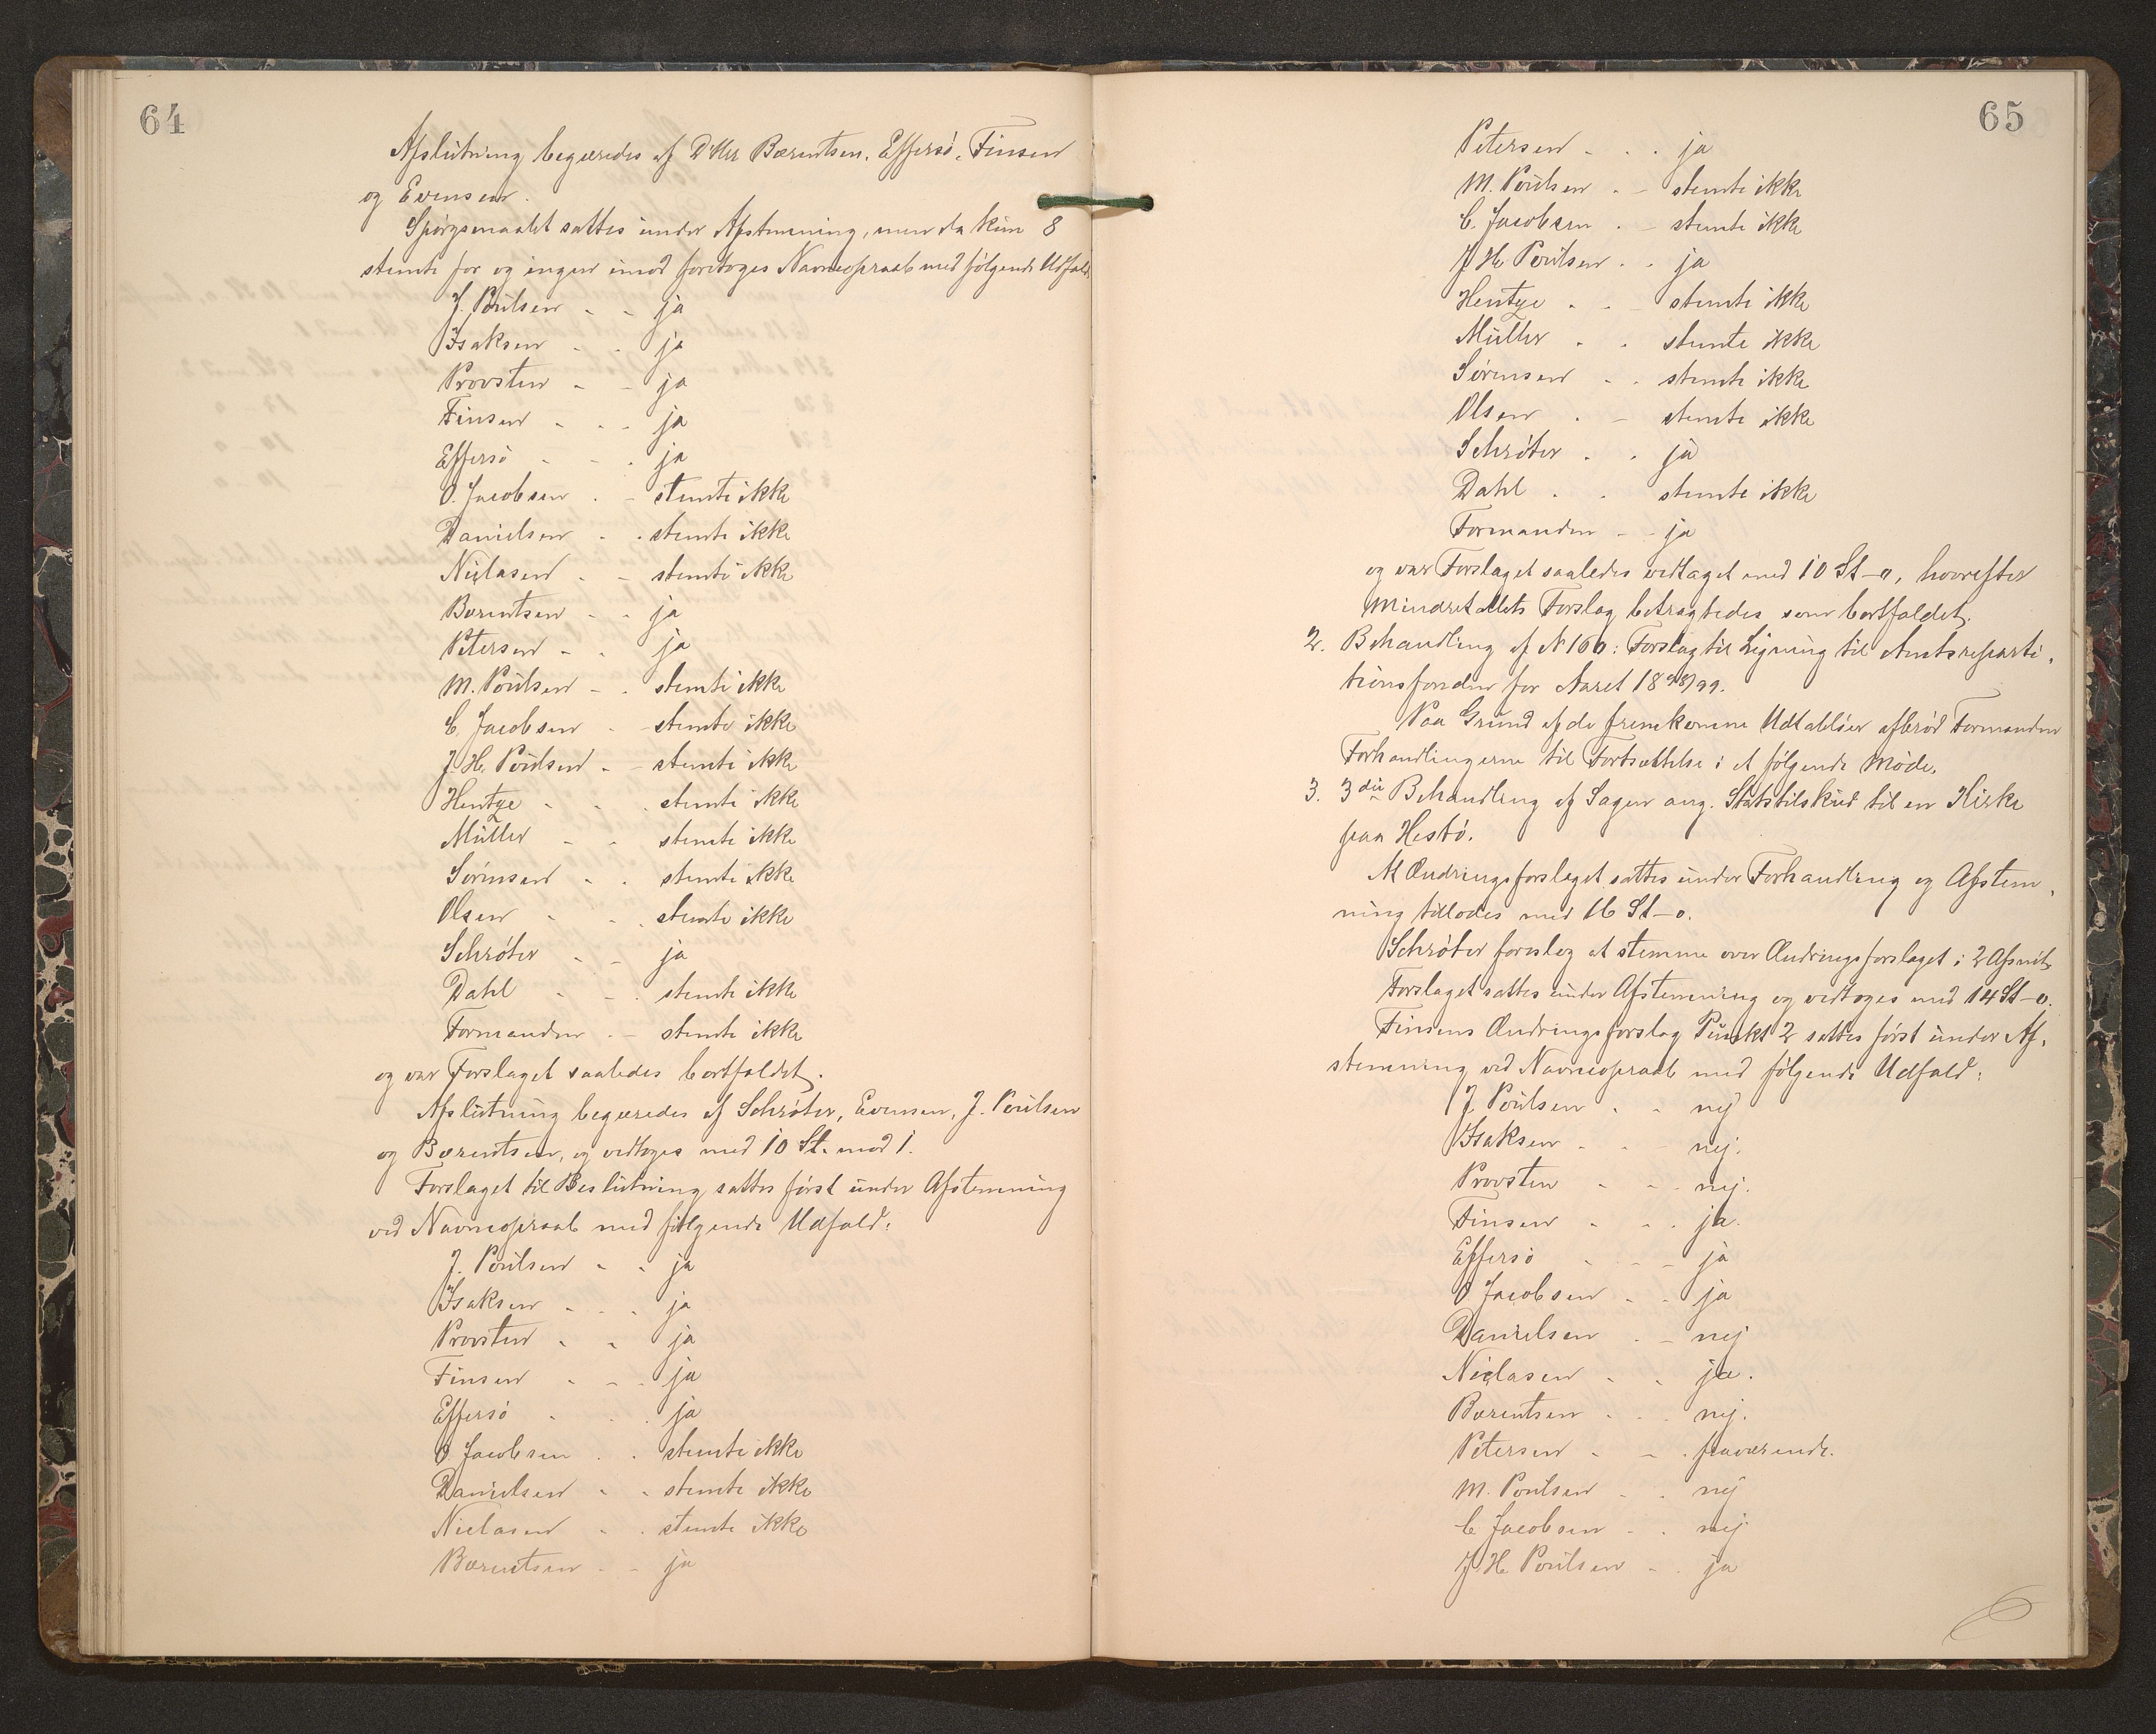 64
Afslutning begæredes af D'Hrr Bærentsen, Effersö, Finsen
og Evensen.
Spörgsmaalet sattes under Afstemning, men da kun 8
stemte for og ingen imod foretoges Navneopraab med fölgende Udfald
J. Poulsen - - ja
Isaksen - - ja
Provsten - - ja
Finsen - - - ja
Effersö - - - ja
O. Jacobsen - - stemte ikke
Danielsen - - stemte ikke
Niclasen - - stemte ikke
Bærentsen - - ja
Petersen - - ja
M. Poulsen - - stemte ikke
C. Jacobsen - - stemte ikke
J. H. Poulsen - - stemte ikke
Hentze - - - stemte ikke
Müller - - stemte ikke
Sörensen - - stemte ikke
Olsen - - - stemte ikke
Schröter - - ja
Dahl - - - stemte ikke
Formanden - - stemte ikke
og var Forslaget saaledes bortfaldet.
Afslutning begæredes af Schröter, Evensen, J. Poulsen
og Bærentsen, og vedtoges med 10 St. mod 1.
Forslaget til Beslutning sattes först under Afstemning
ved Navneopraab med fölgende Udfald:
J. Poulsen - - ja
Isaksen - - - ja
Provsten - - ja
Finsen - - - ja
Effersö - - - ja
O. Jacobsen - - stemte ikke
Danielsen - - stemte ikke
Niclasen - - stemte ikke
Bærentsen - - ja
65
Petersen - - - ja
M. Poulsen - - stemte ikke
C. Jacobsen - - stemte ikke
J H. Poulsen - - ja
Hentze - - - stemte ikke
Müller - - stemte ikke
Sörensen - - stemte ikke
Olsen - - stemte ikke
Schröter - - ja
Dahl - - stemte ikke
Formanden - - ja
og var Forslaget saaledes vedtaget med 10 St-0, hvorefter
Mindretallets Forslag betragtedes som bortfaldet.
2. Behandling af N 160: Forslag til Ligning til Amtsreparti-
tionsfonden for Aaret 1898/99.
Paa Grund af de fremkomne Udtalelser afbröd Formanden
Forhandlingerne til Fortsættelse i et fölgende Möde.
3. 3die Behandling af Sagen ang. Statstilskud til en Kirke
paa Hestö.
At Ændringsforslaget sattes under Forhandling og Afstem-
ning tillodes med 16 St-0.
Schröter foreslog at stemme over Ændringsforslaget i 2 Afsnit
Forslaget sattes under Afstemning og vedtoges med 14 St-0.
Finsens Ændringsforslag Punkt 2 sattes först under Af-
stemning ved Navneopraab med fölgende Udfald:
J Poulsen - - nej
Isaksen - - nej.
Provsten - - - nej.
Finsen - - - ja.
Effersö - - - ja
O Jacobsen - - ja
Danielsen - - nej
Niclasen - - ja.
Bærentsen - - - nej.
Petersen - - - fraværende.
M. Poulsen - - nej
C Jacobsen - - nej
J H. Poulsen - - ja